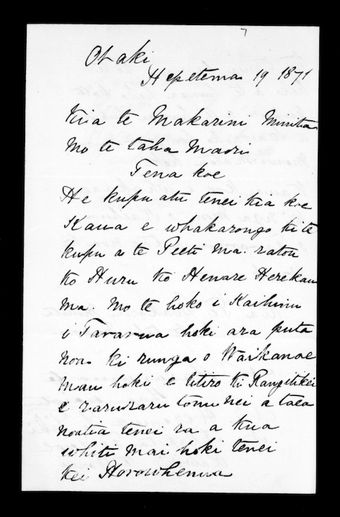 7
Otaki
Hepetema 19 1871
Kia te Makarini Minita
Mo te taha Maori
Tena koe
He kupu atu tenei kia koe
Kaua e whakarongo ki te
kupu a te Peeti ma. ratou
ko Huru ko Henare Herekau
ma. mo te hoko i Kaihinu
i Tararua hoki ara puta
noa ki runga o Waikanae
mau hoki e titiro ki Rangitikei
e raruraru tonu nei a taea
noatia tenei ra a kua
whiti mai hoki tenei
kei Horowhenua